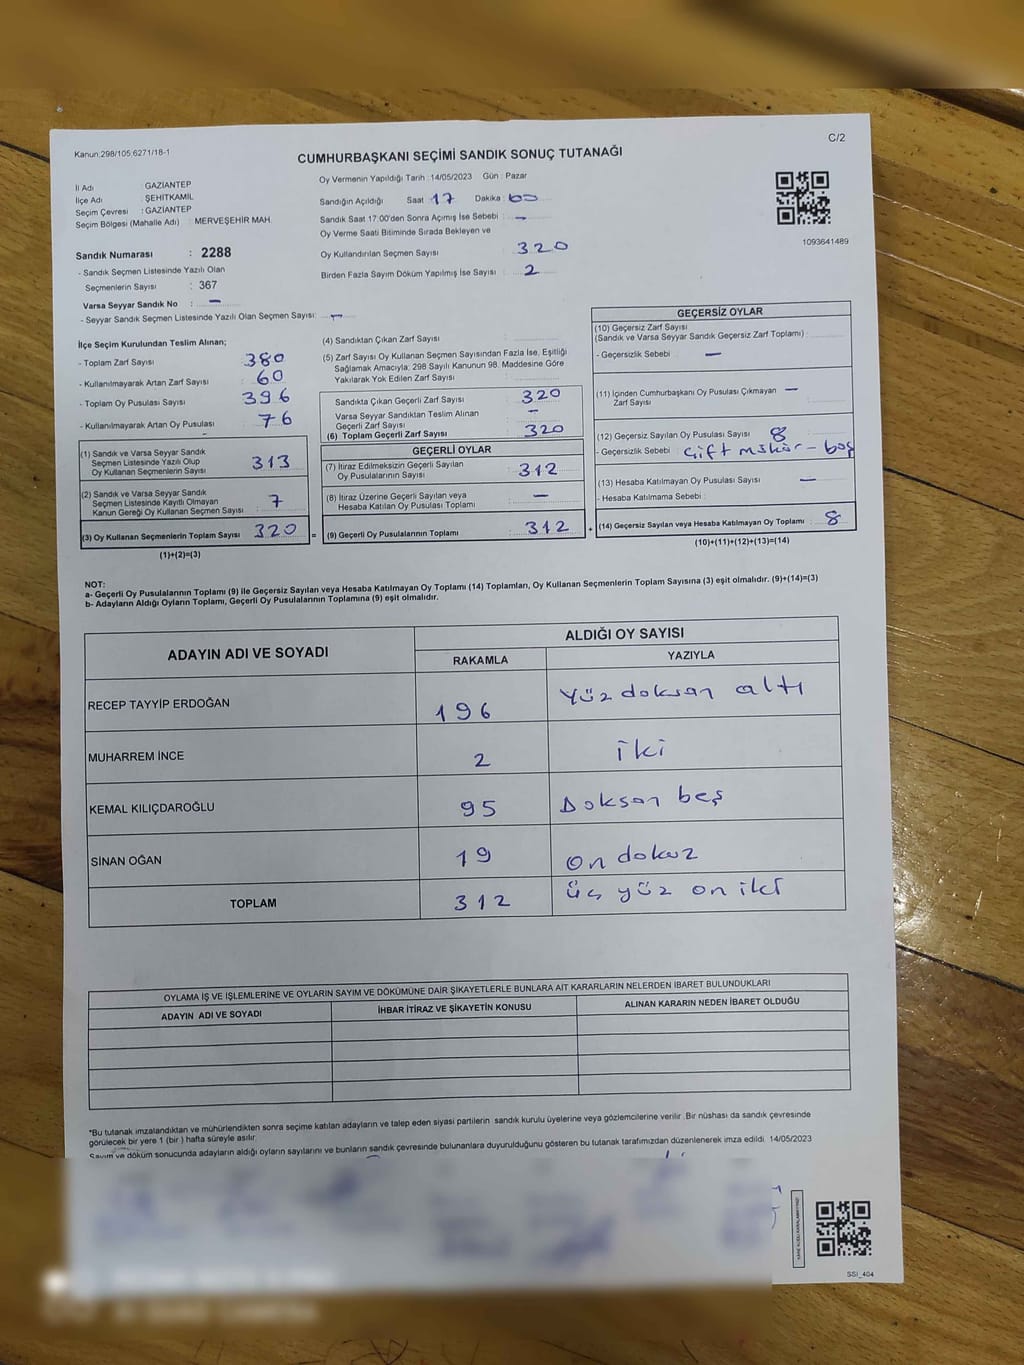 C/2
Kanun:298/105,6271/18-1
CUMHURBAŞKANI SEÇİMİ SANDIK SONUÇ TUTANAĞI
İl Adı : GAZIANTEP
İlçe Adı : ŞEHİTKAMİL
Seçim Çevresi : GAZIANTEP
Seçim Bölgesi (Mahalle Adı) : MERVEŞEHİR MAH.
Sandık Numarası : 2288
- Sandık Seçmen Listesinde Yazılı Olan
Seçmenlerin Sayısı : 367
Varsa Seyyar Sandık No : –
- Seyyar Sandık Seçmen Listesinde Yazılı Olan Seçmen Sayısı: –
Oy Vermenin Yapıldığı Tarih :14/05/2023 Gün : Pazar
Sandığın Açıldığı Saat 17 Dakika
Sandık Saat 17:00'den Sonra Açımış İse Sebebi : –
Oy Verme Saati Bitiminde Sırada Bekleyen ve
Oy Kullandırılan Seçmen Sayısı : 320
Birden Fazla Sayım Döküm Yapılmış İse Sayısı : 2
1093641489
İlçe Seçim Kurulundan Teslim Alınan;
- Toplam Zarf Sayısı : 380
- Kullanılmayarak Artan Zarf Sayısı : 60
- Toplam Oy Pusulası Sayısı : 396
- Kullanılmayarak Artan Oy Pusulası : 76
(1) Sandık ve Varsa Seyyar Sandık
Seçmen Listesinde Yazılı Olup
Oy Kullanan Seçmenlerin Sayısı : 313
(2) Sandık ve Varsa Seyyar Sandık
Seçmen Listesinde Kayıtlı Olmayan
Kanun Gereği Oy Kullanan Seçmen Sayısı : 7
(3) Oy Kullanan Seçmenlerin Toplam Sayısı : 320 =
(1)+(2)=(3)
(4) Sandıktan Çıkan Zarf Sayısı :
(5) Zarf Sayısı Oy Kullanan Seçmen Sayısından Fazla İse, Eşitliği
Sağlamak Amacıyla; 298 Sayılı Kanunun 98. Maddesine Göre
Yakılarak Yok Edilen Zarf Sayısı :
Sandıkta Çıkan Geçerli Zarf Sayısı : 320
Varsa Seyyar Sandıktan Teslim Alınan
Geçerli Zarf Sayısı : –
(6) Toplam Geçerli Zarf Sayısı : 320
GEÇERLİ OYLAR
(7) İtiraz Edilmeksizin Geçerli Sayılan
Oy Pusulalarının Sayısı : 312
(8) İtiraz Üzerine Geçerli Sayılan veya
Hesaba Katılan Oy Pusulası Toplamı : –
(9) Geçerli Oy Pusulalarının Toplamı : 312 +
GEÇERSİZ OYLAR
(10) Geçersiz Zarf Sayısı
(Sandık ve Varsa Seyyar Sandık Geçersiz Zarf Toplamı) :
- Geçersizlik Sebebi : –
(11) İçinden Cumhurbaşkanı Oy Pusulası Çıkmayan –
Zarf Sayısı :
(12) Geçersiz Sayılan Oy Pusulası Sayısı : 8
- Geçersizlik Sebebi : Çift mühür – boş
(13) Hesaba Katılmayan Oy Pusulası Sayısı : –
- Hesaba Katılmama Sebebi :
(14) Geçersiz Sayılan veya Hesaba Katılmayan Oy Toplamı : 8
(10)+(11)+(12)+(13)=(14)
NOT:
a- Geçerli Oy Pusulalarının Toplamı (9) ile Geçersiz Sayılan veya Hesaba Katılmayan Oy Toplamı (14) Toplamları, Oy Kullanan Seçmenlerin Toplam Sayısına (3) eşit olmalıdır. (9)+(14)=(3)
b- Adayların Aldığı Oyların Toplamı, Geçerli Oy Pusulalarının Toplamına (9) eşit olmalıdır.
ADAYIN ADI VE SOYADI
ALDIĞI OY SAYISI
RAKAMLA YAZIYLA
RECEP TAYYİP ERDOĞAN 196 Yüz doksan altı
MUHARREM İNCE 2 iki
KEMAL KILIÇDAROĞLU 95 Doksan beş
SİNAN OĞAN 19 on dokuz
TOPLAM 312 üç yüz on iki
OYLAMA İŞ VE İŞLEMLERİNE VE OYLARIN SAYIM VE DÖKÜMÜNE DAİR ŞİKAYETLERLE BUNLARA AİT KARARLARIN NELERDEN İBARET BULUNDUKLARI
ADAYIN ADI VE SOYADI İHBAR İTİRAZ VE ŞİKAYETİN KONUSU ALINAN KARARIN NEDEN İBARET OLDUĞU
*Bu tutanak imzalandıktan ve mühürlendikten sonra seçime katılan adayların ve talep eden siyasi partilerin sandık kurulu üyelerine veya gözlemcilerine verilir. Bir nüshası da sandık çevresinde
görülecek bir yere 1 (bir) hafta süreyle asılır.
Sayım ve döküm sonucunda adayların aldığı oyların sayılarını ve bunların sandık çevresinde bulunanlara duyurulduğunu gösteren bu tutanak tarafımızdan düzenlenerek imza edildi. 14/05/2023
SSI_404